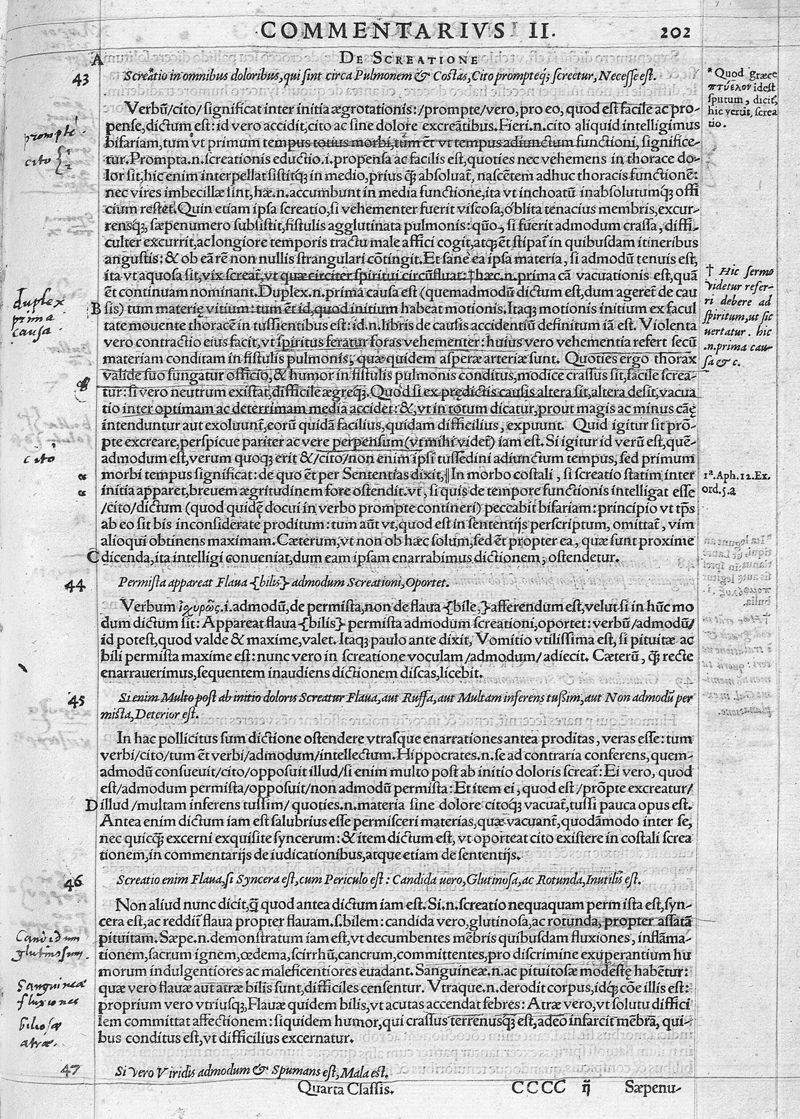 COMMENTARIVS II. 202
A
DE SCREATIONE
43 Screatio in omnibus doloribus, qui sint circa Pulmonem & Costas, Cito prompteq; screetur, Necesse est.
* Quod græce
πτύελον idest
sputum, dicit,
hic vertit, screa
tio.
Verbū/cito/significat inter initia ægrotationis:/prompte/vero, pro eo, quod est facile ac pro-
pense, dictum est: id vero accidit, cito ac sine dolore excreātibus. Fieri.n.cito aliquid intelligimus
prompte
cito
bifariam, tum vt primum tempus totius morbi, tum ēt vt tempus adiunctum functioni, significe-
tur. Prompta.n.screationis eductio.i.propensa ac facilis est, quoties nec vehemens in thorace do-
lor sit, hic enim interpellat sistitq; in medio, prius q̄ absoluat, nascētem adhuc thoracis functionē:
nec vires imbecillæ sint, hæ.n.accumbunt in media functione, ita vt inchoatū inabsolutumq; offi
cium restet. Quin etiam ipsa screatio, si vehementer fuerit viscosa, oblita tenacius membris, excur-
rensq;, sæpenumero subsistit, fistulis agglutinata pulmonis: quō, si fuerit admodum crassa, diffi-
culter excurrit, ac longiore temporis tractu male affici cogit, atq; ēt stipari in quibusdam itineribus
angustis: & ob eā rē non nullis strangulari cōtingit. Et sane ea ipsa materia, si admodū tenuis est,
ita vt aquosa sit, vix screat, vt quæ circiter spiritui circūfluat: † hæc.n.prima cā vacuationis est, quā
† Hic sermo
videtur refer-
ri debere ad
spiritum, ut sic
uertatur. hic
.n.prima cau-
sa &c.
ēt continuam nominant. Duplex.n.prima causa est (quemadmodū dictum est, dum ageret de cau
duplex
prima
causa.
B sis) tum materię vitium: tum ēt id, quod initium habeat motionis. Itaq; motionis initium ex facul
tate mouente thoracē in tussientibus est: id.n.libris de causis accidentiū definitum iā est. Violenta
vero contractio eius facit, vt spiritus feratur foras vehementer: huius vero vehementia refert secū
materiam conditam in fistulis pulmonis, quæ quidem asperæ arteriæ sunt. Quoties ergo thorax
valide suo fungatur officio, & humor in fistulis pulmonis conditus, modice crassus sit, facile screa-
tur: si vero neutrum existat, difficile ægreq;. Quod si ex prędictis causis altera sit, altera desit, vacua
tio inter optimam ac deterrimam media accidet: &, vt in totum dicatur, prout magis ac minus cāę
intenduntur aut exoluunt, eorū quidā facilius, quidam difficilius, expuunt. Quid igitur sit prō-
pte excreare, perspicue pariter ac vere perpensum (vt mihi videt) iam est. Si igitur id verū est, quē-
cito
admodum est, verum quoq; erit &/cito/non enim ipsi tussedini adiunctum tempus, sed primum
morbi tempus significat: de quo ēt per Sententias dixit, || In morbo costali, si screatio statim inter
1ª. Aph. 12. Ex.
ord. 5. a
initia apparet, breuem ægritudinem fore ostendit. vt, si quis de tempore functionis intelligat esse
/cito/dictum (quod quidę docui in verbo prompte contineri) peccabit bifariam: principio vt tp̄s
ab eo sit bis inconsiderate proditum: tum aūt vt, quod est in sententijs perscriptum, omittat, vim
alioqui obtinens maximam. Cæterum, vt non ob hæc solum, sed ēt propter ea, quæ sunt proxime
C dicenda, ita intelligi conueniat, dum eam ipsam enarrabimus dictionem, ostendetur.
44 Permista appareat Flaua {bilis} admodum Screationi, Oportet.
Verbum ἰσχυρῶς.i.admodū, de permista, non de flaua {bile,} afferendum est, velut si in hūc mo
dum dictum sit: Appareat flaua {bilis} permista admodum screationi, oportet: verbū/admodū/
id potest, quod valde & maxime, valet. Itaq; paulo ante dixit, Vomitio vtilissima est, si pituitæ ac
bili permista maxime est: nunc vero in screatione voculam/admodum/adiecit. Cæterū, q̄ recte
enarrauerimus, sequentem inaudiens dictionem discas, licebit.
45 Si enim Multo post ab initio doloris Screatur Flaua, aut Ruffa, aut Multam inferens tussim, aut Non admodū per
mista, Deterior est.
In hac pollicitus sum dictione ostendere vtrasque enarrationes antea proditas, veras esse: tum
verbi/cito/tum ēt verbi/admodum/intellectum. Hippocrates.n.se ad contraria conferens, quem-
admodū consueuit/cito/opposuit illud/si enim multo post ab initio doloris screat: Ei vero, quod
est/admodum permista/opposuit/non admodū permista: Et item ei, quod est/prōpte excreatur/
D illud/multam inferens tussim/quoties.n.materia sine dolore citoq; vacuat, tussi pauca opus est.
Antea enim dictum iam est salubrius esse permisceri materias, quæ vacuant, quodāmodo inter se,
nec quicq̄ excerni exquisite syncerum: & item dictum est, vt oporteat cito existere in costali screa
tionem, in commentarijs de iudicationibus, atque etiam de sententijs.
46 Screatio enim Flaua, si Syncera est, cum Periculo est: Candida uero, Glutinosa, ac Rotunda, Inutilis est.
Non aliud nunc dicit, q̄ quod antea dictum iam est. Si.n.screatio nequaquam permista est, syn-
cera est, ac reddit flaua propter flauam.s.bilem: candida vero, glutinosa, ac rotunda, propter assatā
Candidum
glutinosum.
pituitam. Sæpe.n.demonstratum iam est, vt decumbentes mēbris quibusdam fluxiones, inflāma-
tionem, sacrum ignem, œdema, scirrhū, cancrum, committentes, pro discrimine exuperantium hu
morum indulgentiores ac maleficentiores euadant. Sanguineæ.n.ac pituitosæ modestę habētur:
Sanguineæ
fluxiones
quæ vero flauæ aut atræ bilis sunt, difficiles censentur. Vtraque.n.derodit corpus, idq; cōe illis est:
proprium vero vtriusq;, Flauæ quidem bilis, vt acutas accendat febres: Atræ vero, vt solutu diffici
biliosæ
atræ.
lem committat affectionem: siquidem humor, qui crassus terrenusq; est, adeo infarcit mēbra, qui-
bus conditus est, vt difficilius excernatur.
47 Si vero Viridis admodum & Spumans est, Mala est.
Quarta Classis. CCCC ij Sæpenu-